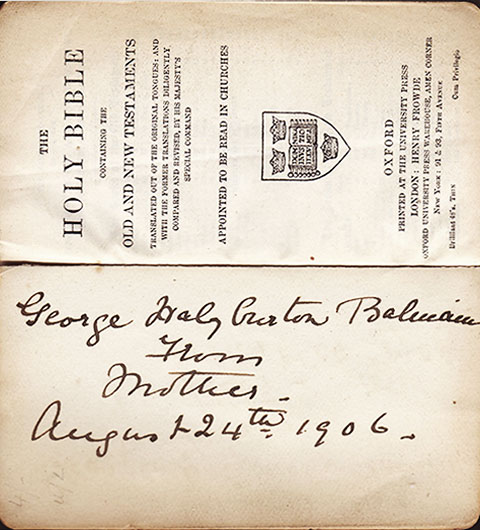 THE
HOLY BIBLE
CONTAINING THE
OLD AND NEW TESTAMENTS
TRANSLATED OUT OF THE ORIGINAL TONGUES; AND
WITH THE FORMER TRANSLATIONS DILIGENTLY
COMPARED AND REVISED, BY HIS MAJESTY'S
SPECIAL COMMAND
APPOINTED TO BE READ IN CHURCHES
OXFORD
PRINTED AT THE UNIVERSITY PRESS
LONDON: HENRY FROWDE
OXFORD UNIVERSITY PRESS WAREHOUSE, AMEN CORNER
New York: 91 & 93, Fifth Avenue
Brilliant Thin Cum Privilegio
George Halyburton Balmain
From
Mother.
August 24th 1906.